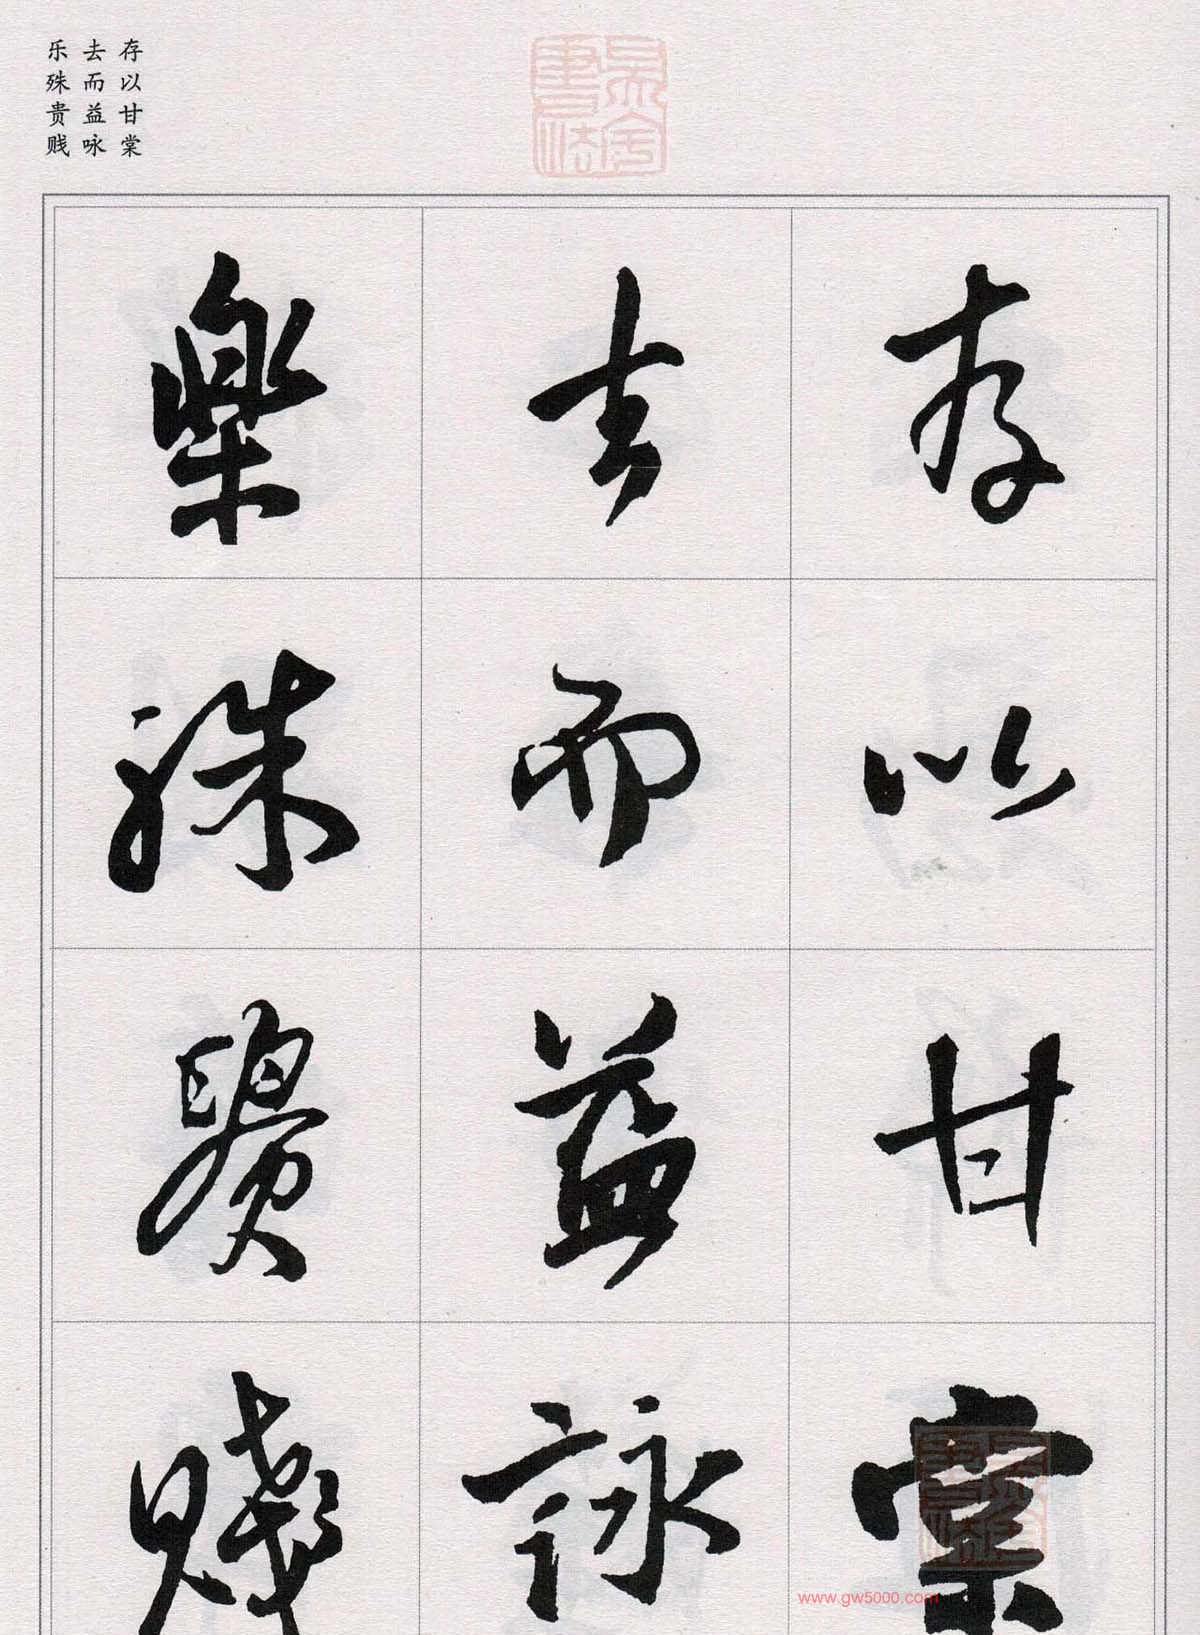 存以甘棠
去而益咏
乐殊贵贱
存以甘棠
去而益詠
樂殊貴賤
www.gw5000.com